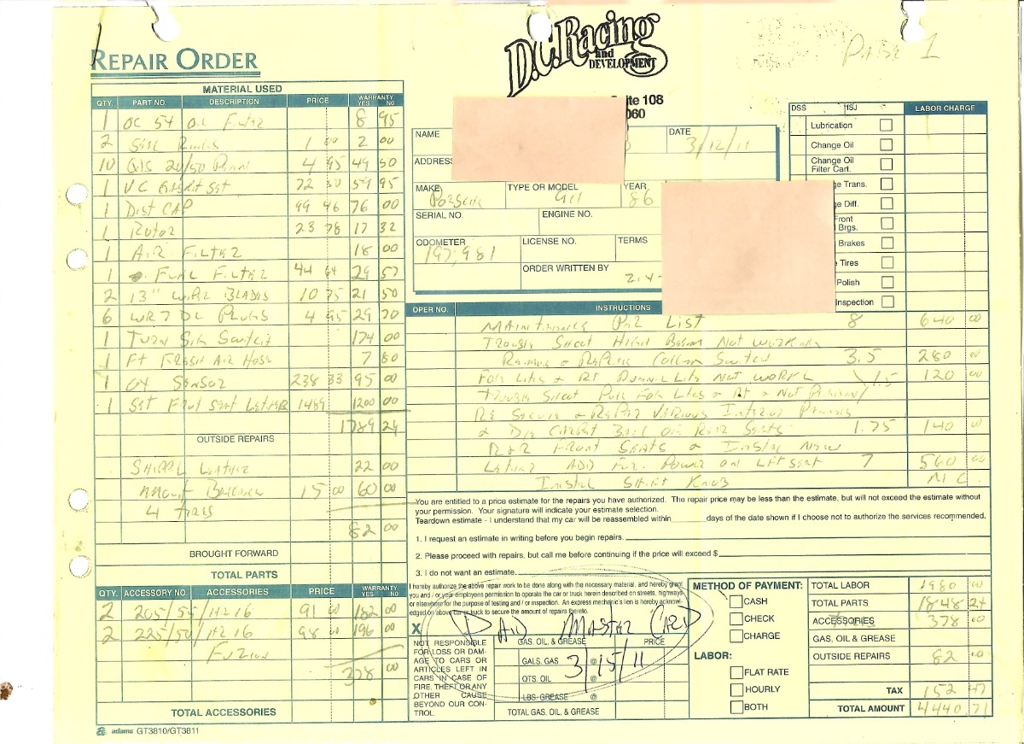 REPAIR ORDER
D.C. Racing
and
DEVELOPMENT
Suite 108
060
Page 1
MATERIAL USED
QTY. PART NO. DESCRIPTION PRICE WARRANTY YES NO
1 OC 54 Oil Filter 8 95
2 1 00 2 00
10 20/50 4 95 49 50
1 VC Gasket Set 72 54 95
1 Dist CAP 99 46 76 00
1 Rotor 23 78 17 32
1 Air Filter 18 00
1 Fuel Filter 44 64 29 57
2 13" Wiper Blades 10 75 21 50
6 WR7 DC Plugs 4 95 29 70
1 Turn Sig Switch 174 00
1 Ft Air Hose 7 80
1 OX Sensor 238 33 95 00
1 Set Front Seat Leather 1489 1200 00
1789 24
OUTSIDE REPAIRS
Leather 22 00
Mount Balance 15 00 60 00
4 Tires
82 00
BROUGHT FORWARD
TOTAL PARTS
QTY. ACCESSORY NO. ACCESSORIES PRICE WARRANTY YES NO
2 205/55/HR16 91 00 182 00
2 225/50/HR16 98 00 196 00
Fuzion
378 00
TOTAL ACCESSORIES
adams GT3810/GT3811
NAME
DATE
3/12/11
ADDRESS
MAKE TYPE OR MODEL YEAR
Porsche 911 86
SERIAL NO. ENGINE NO.
ODOMETER LICENSE NO. TERMS
197,981
ORDER WRITTEN BY
DSS ISJ LABOR CHARGE
Lubrication
Change Oil
Change Oil
Filter Cart.
ge Trans.
ge Diff.
Front
Brgs.
Brakes
Tires
Polish
Inspection
OPER NO. INSTRUCTIONS
Maintenance Per List 8 640 00
Trouble Shoot High Beam Not Working
Remove & Replace Column Switch 3.5 280 00
Fog Lites & Rt Running Lite Not Work 1.5 120 00
Trouble Shoot Fog Lites & Rt
Re Secure & Repair Various Interior
& Rear Seats 1.75 140 00
R&R Front Seats & Install New
Leather ADD For Power on Lft Seat 7 560 00
Install Shift Knob N/C
You are entitled to a price estimate for the repairs you have authorized. The repair price may be less than the estimate, but will not exceed the estimate without
your permission. Your signature will indicate your estimate selection.
Teardown estimate - I understand that my car will be reassembled within days of the date shown if I choose not to authorize the services recommended.
1. I request an estimate in writing before you begin repairs.
2. Please proceed with repairs, but call me before continuing if the price will exceed $
3. I do not want an estimate.
I hereby authorize the above repair work to be done along with the necessary material, and hereby grant
you and / or your employees permission to operate the car or truck herein described on streets, highways
or elsewhere for the purpose of testing and / or inspection. An express mechanic's lien is hereby acknowl-
edged on above car or truck to secure the amount of repairs thereto.
X
PAID MASTER CARD
3/15/11
NOT RESPONSIBLE
FOR LOSS OR DAM-
AGE TO CARS OR
ARTICLES LEFT IN
CARS IN CASE OF
FIRE, THEFT OR ANY
OTHER CAUSE
BEYOND OUR CON-
TROL.
GAS, OIL & GREASE PRICE
GALS. GAS @
QTS. OIL @
LBS. GREASE @
TOTAL GAS, OIL & GREASE
METHOD OF PAYMENT:
CASH
CHECK
CHARGE
LABOR:
FLAT RATE
HOURLY
BOTH
TOTAL LABOR 1980 00
TOTAL PARTS 1848 24
ACCESSORIES 378 00
GAS, OIL & GREASE
OUTSIDE REPAIRS 82 00
TAX 152 47
TOTAL AMOUNT 4440 71